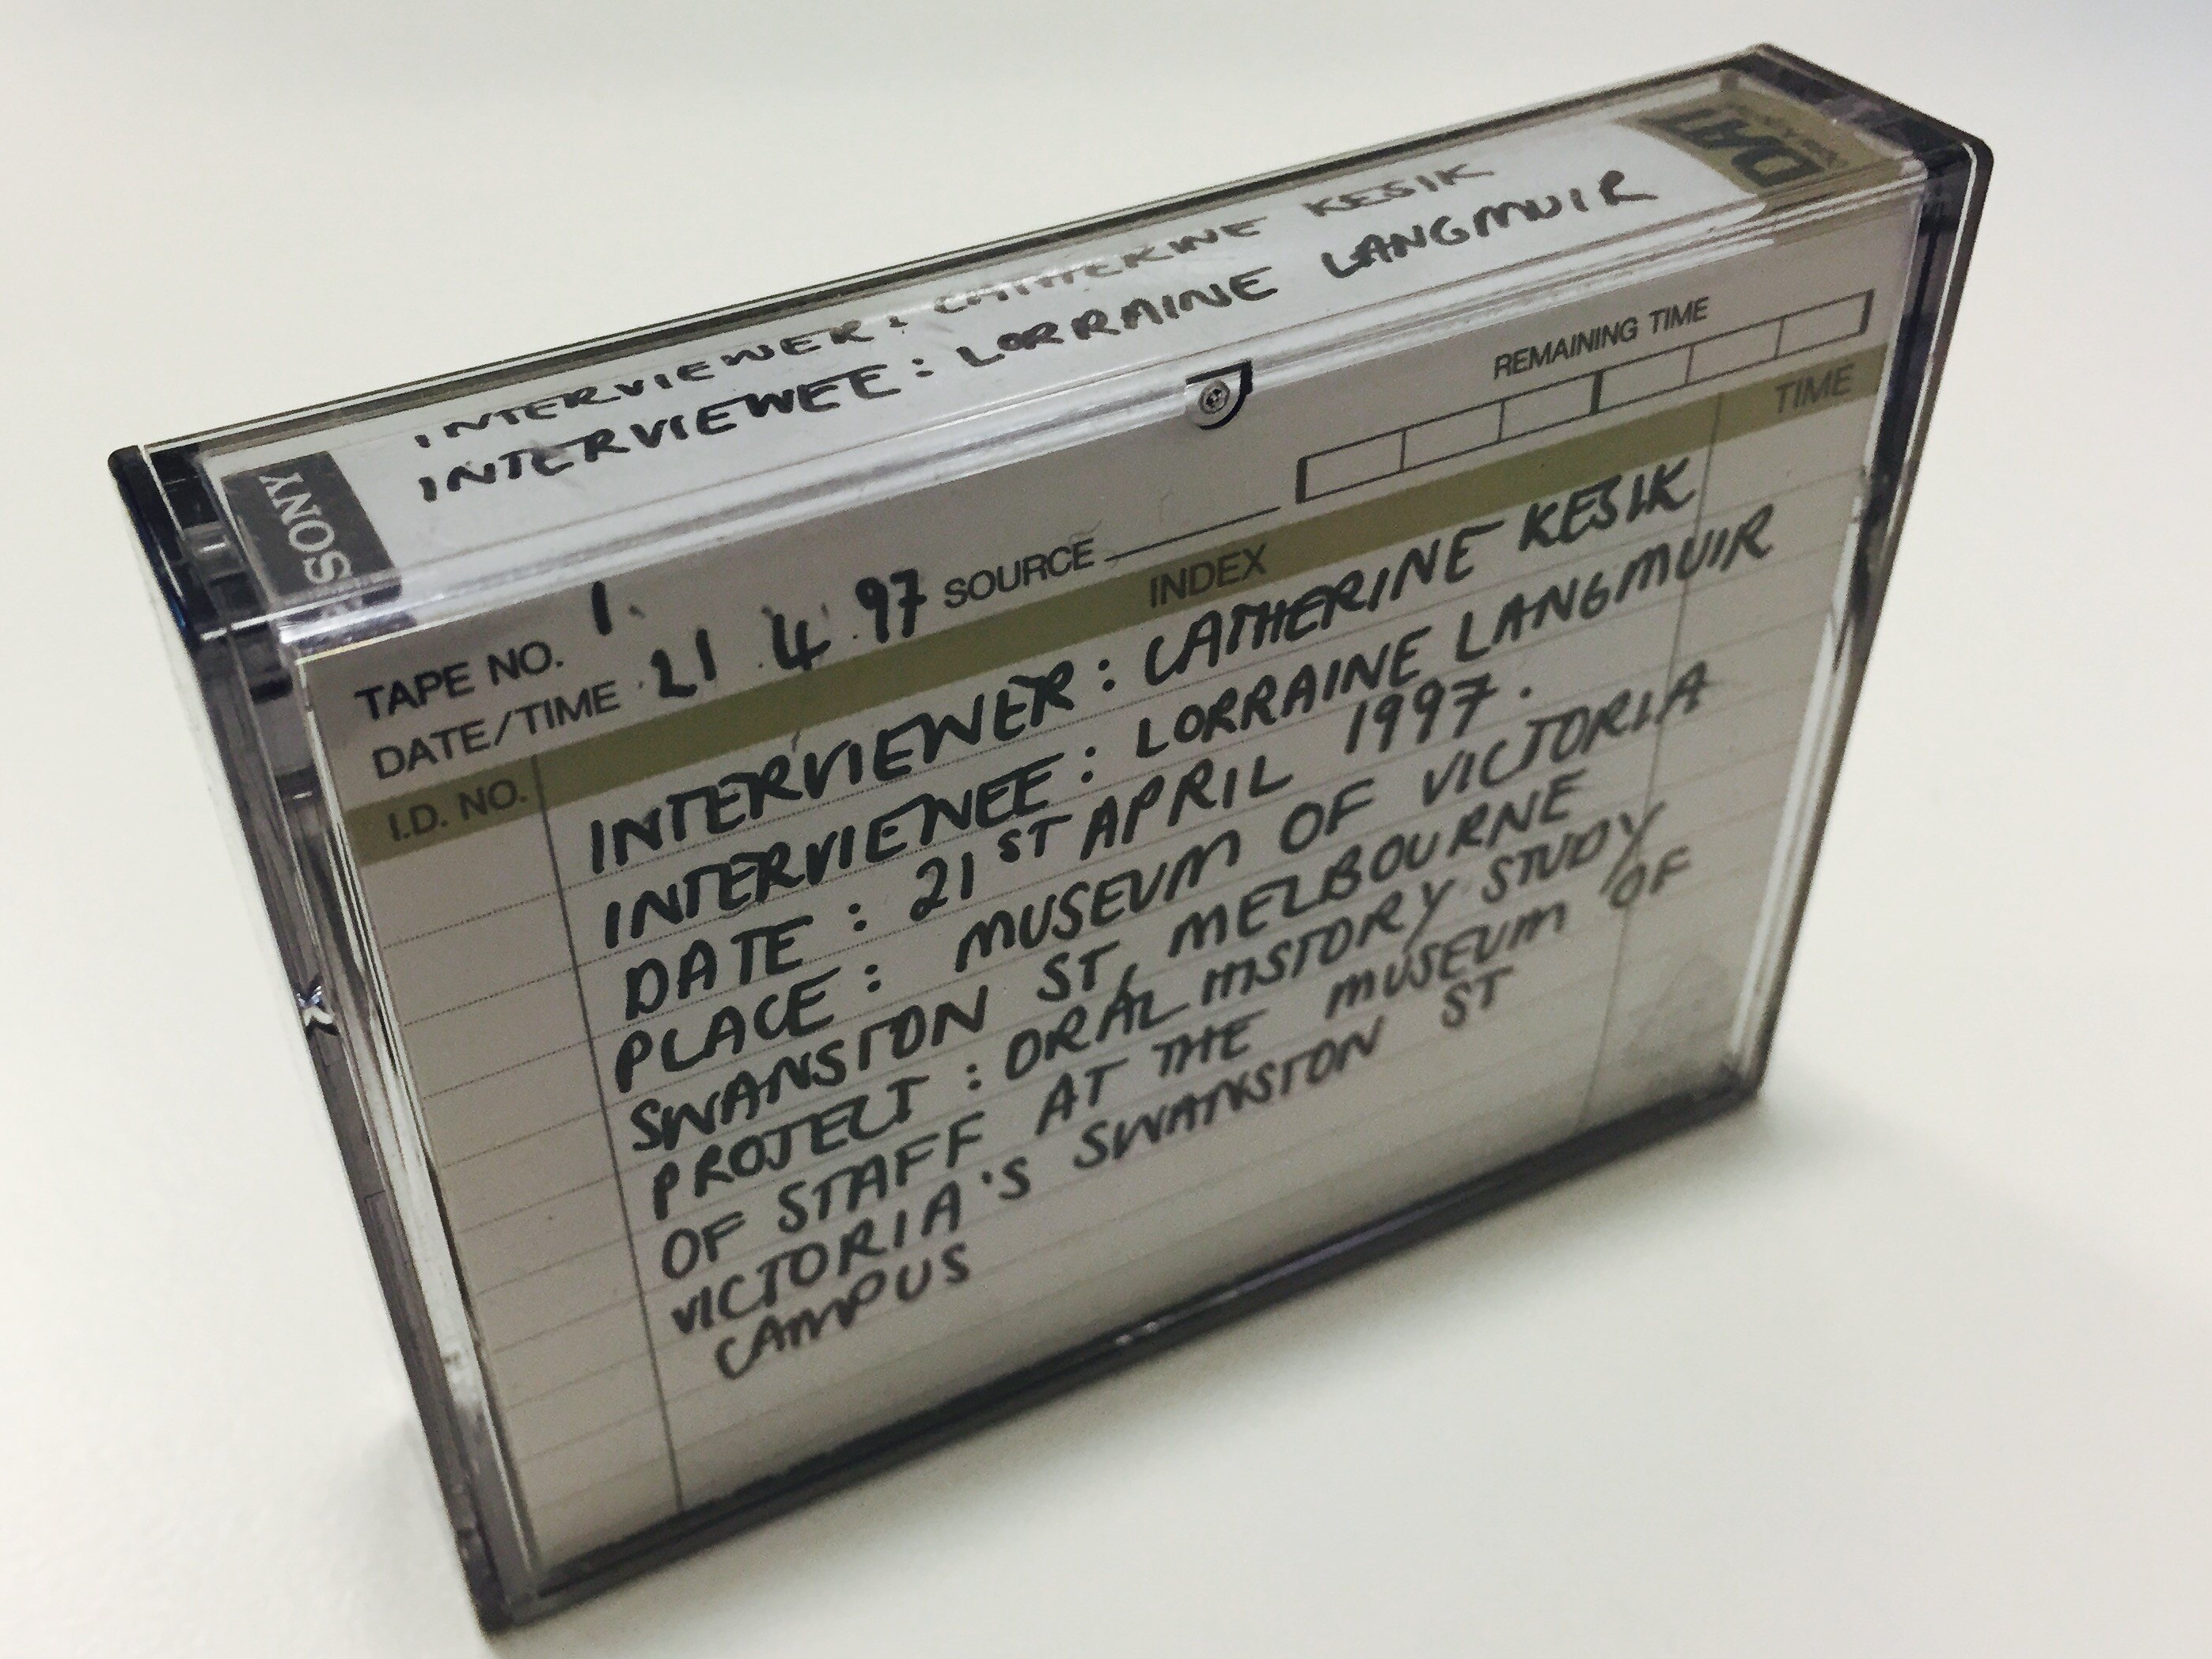 DAT
INTERVIEWER: CATHERINE KESIK
INTERVIEWEE: LORRAINE LANGMUIR
SONY
REMAINING TIME
TAPE NO. 1.
DATE/TIME 21 4 97 SOURCE
I.D. NO. INDEX TIME
INTERVIEWER: CATHERINE KESIK
INTERVIENEE: LORRAINE LANGMUIR
DATE: 21ST APRIL 1997.
PLACE: MUSEUM OF VICTORIA
SWANSTON ST, MELBOURNE
PROJECT: ORAL HISTORY STUDY
OF STAFF AT THE MUSEUM OF
VICTORIA'S SWANSTON ST
CAMPUS